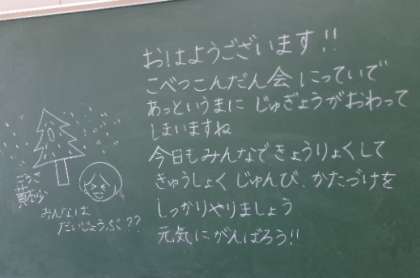 おはようございます!!
こべつこんだん会 にっていで
あっというまに じゅぎょうがおわって
しまいますね
今日もみんなできょうりょくして
きゅうしょく じゅんび、かたづけを
しっかりやりましょう
元気にがんばろう!!
みんなは
だいじょうぶ??